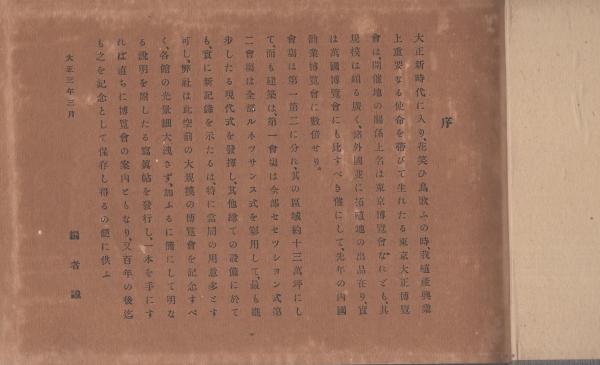 序
大正新時代に入り、花笑ひ鳥歌ふの時、我殖產興業
上重要なる使命を帶びて生れたる東京大正博覽
會は、開催地の關係上名は東京博覽會なれども、其
規模は頗る廣く、諸外國並に拓殖地の出品在り、實
は萬國博覽會にも比すべき催にして、先年の內國
勸業博覽會に數倍せり。
會場は第一第二に分れ、其の區域約十三萬坪にし
て、而も建築は、第一會場は全部セセツシヨン式、第
二會場は全部ルネツサンス式を應用して、最も進
步したる現代式を發揮し、其他總ての設備に於て
も、實に新記錄を示たるは、特に當局の用意多とす
可し、弊社は此空前の大規模の博覽會を記念すべ
く、各館の光景細大洩さず、加ふるに簡にして明な
る說明を附したる寫眞帖を發行し、一本を手にす
れば直ちに博覽會の案內ともなり、又百年の後迄
も之を記念として保存し得るの便に供ふ
大正三年三月
編者識